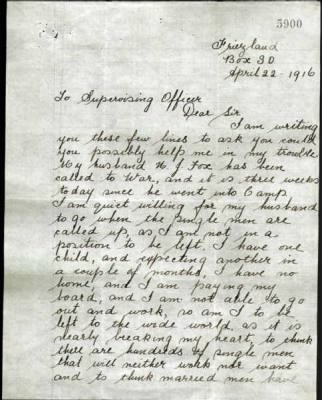 5900
Friezland
Box 30
April 22 - 1916
To Supervising Officer
Dear Sir
I am writing
you these few lines to ask you could
you possibly help me in my trouble
My husband H J Fox has been
called to War, and it is three weeks
today since he went into Camp
I am quiet willing for my husband
to go when the single men are
called up, as I am not in a
position to be left. I have one
child, and expecting another in
a couple of months, I have no
home, and I am paying my
board, and I am not able to go
out and work, so am I to be
left to the wide world, as it is
nearly breaking my heart, to think
there are hundreds of single men
that will neither work nor want
and to think married men have